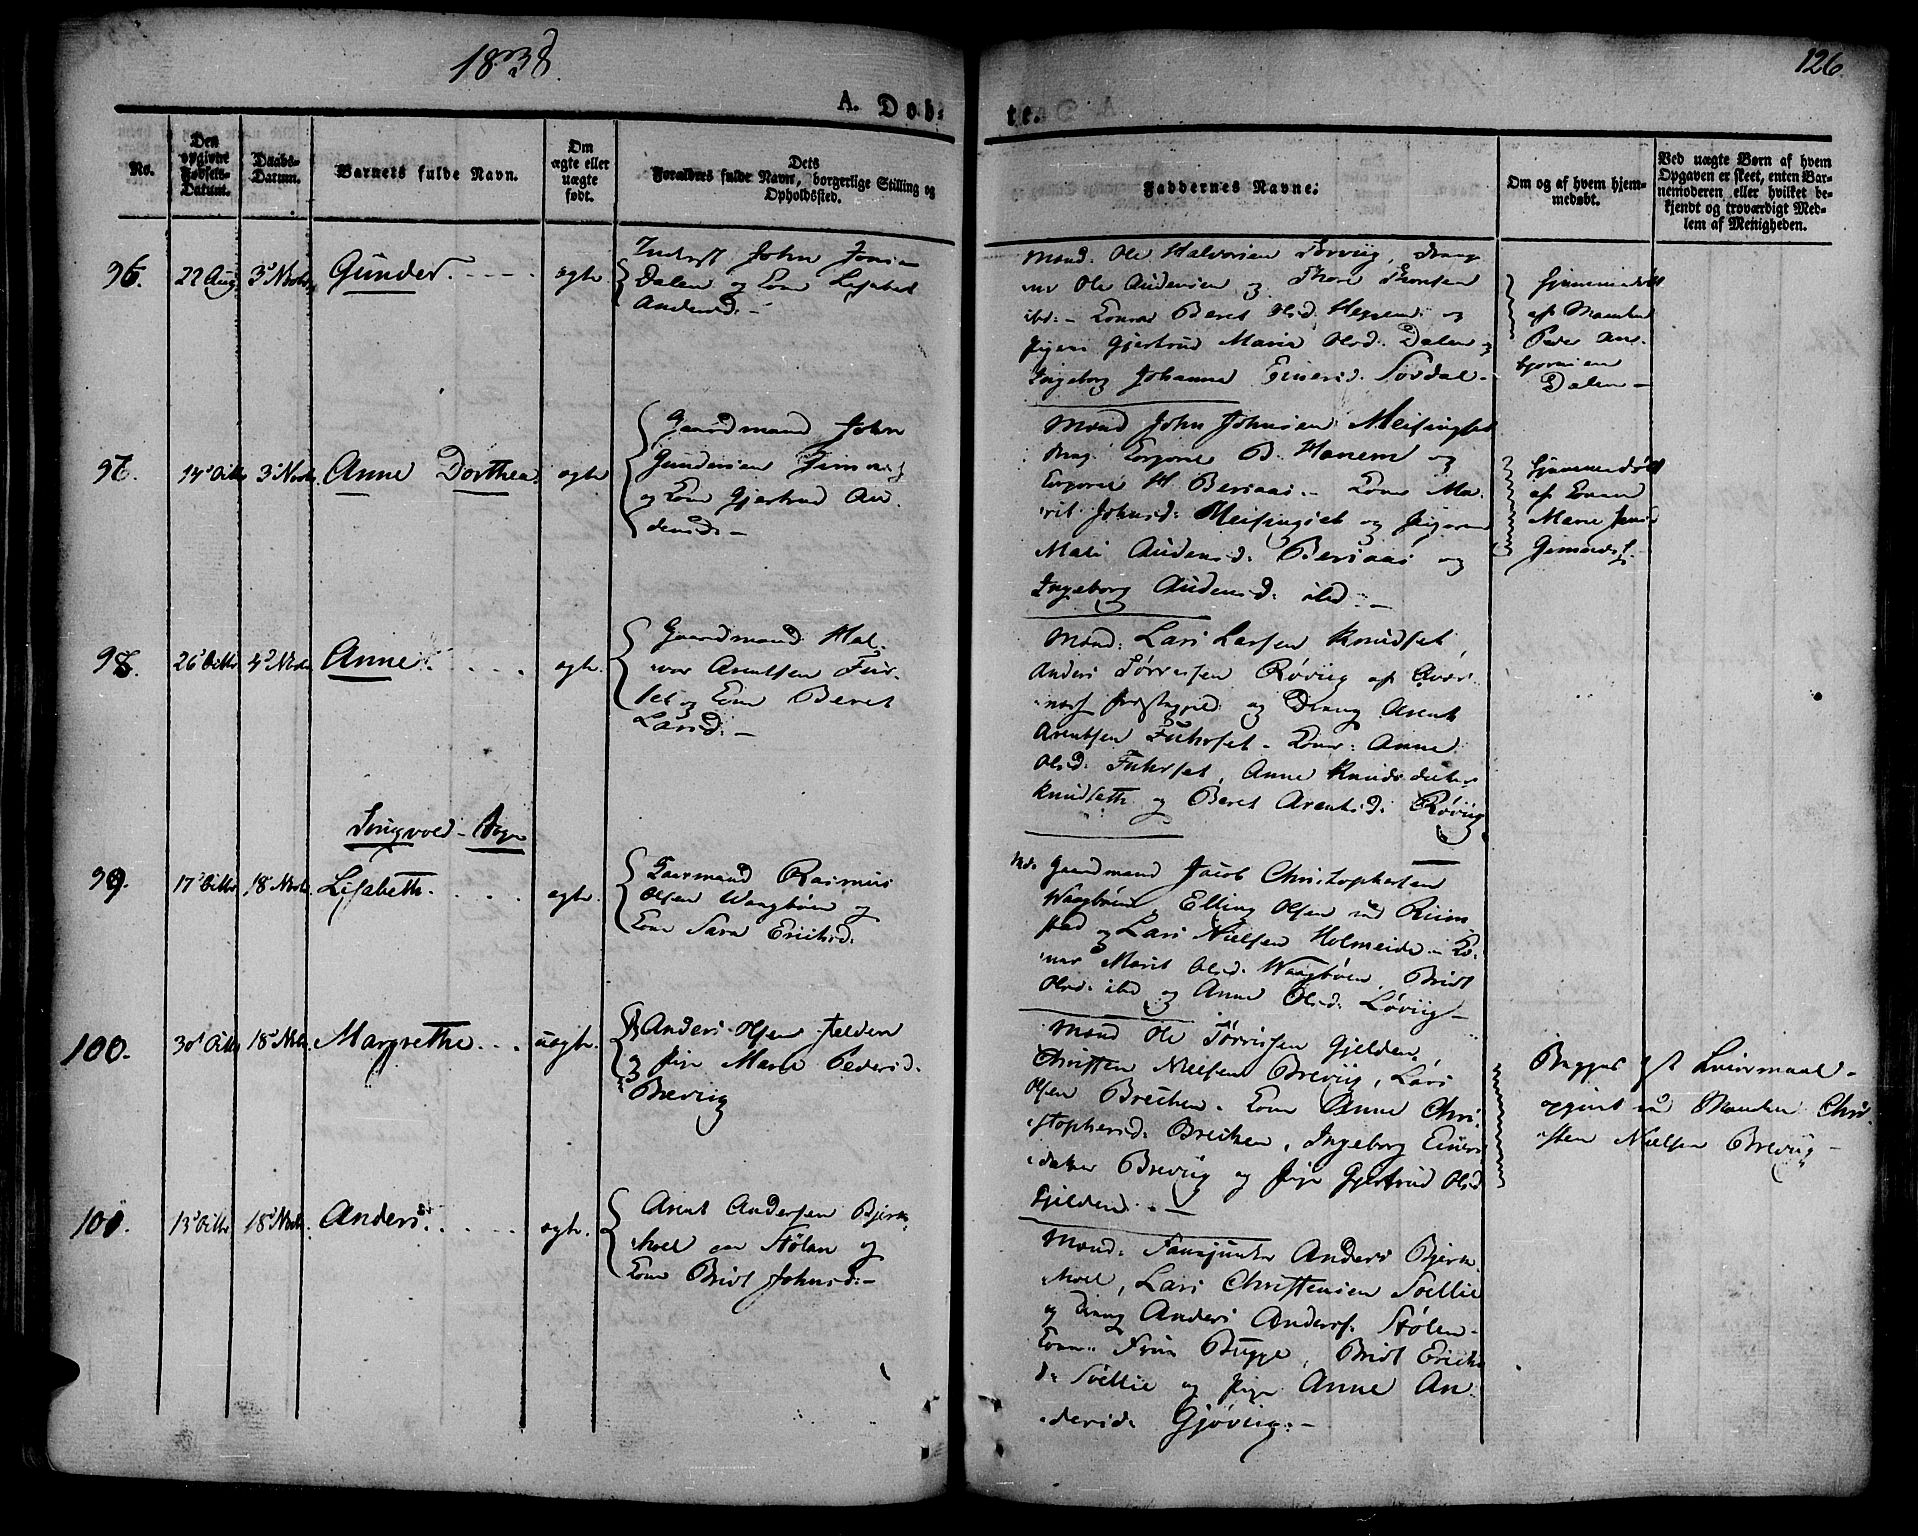 1838
126
A. Døb-
te.
No.
Den opgivne Fødsels-Datum.
Daabs-Datum.
Barnets fulde Navn.
Om ægte eller uægte født.
Dets Forældres fulde Navn, borgerlige Stilling og Opholdssted.
Faddernes Navne.
Om og af hvem hjem-
medøbt.
Ved uægte Børn af hvem
Opgaven er skeet, enten Bar-
nemoderen eller hvilket be-
kjendt og troværdigt Med-
lem af Menigheden.
96. 22 Aug 3 Novbr Gunder. ægte
John
Dalen og Kone Lisabet
Andersd. –
Mænd. Ole Halvorsen
Ole Audensen og Thore Thoresen
ibd. – Koner Beret Olsd. og
Piger Gjertrud Maria Olsd. Dalen
Ingeborg Johanna Einersd. Sørdal –
Hjemmedøbt
af Manden
Peder
Dalen –
97. 14 Octbr 3 Novbr Anne Dorthea. ægte
Gaardmand John
Gundersen
og Kone Gjertrud Au-
densd. –
Mænd John Johnsen Meisingset
B. Hanem og
H. Bersaas. – Koner Ma-
rit Johnsd. Meisingset og Pigerne
Mali Audensd. Bersaas og
Ingeborg Audensd. ibd. –
Hjemmedøbt
af Konen
Marie
98. 26 Octbr 4 Novbr Anne. ægte
Gaardmand Hal-
vor Arentsen Fur-
set og Kone Beret
Larsd. –
Mænd: Lars Larsen Knudset,
Anders Tørresen Røviig af Qvær-
næs Præstegjeld og Dreng Arent
Arentsen Fuhrset – Koner: Anne
Olsd. Fuhrset, Anne Knudsdatter
Knudseth og Beret Arentsd. Røviig
Tingvold – Sogn
99. 17 Octbr 18 Novbr Lisabeth. ægte
Gaardmand Rasmus
Olsen Waagbøen og
Kone Sara Erichsd.
Md. Gaardmand Jacob Christophersen
Waagbøen, Elling Olsen
og Lars Nielsen Holmeide – Ko-
ner Marit Olsd. Waagbøen, Bridt
Olsd. ibd og Anne Olsd. Løviig –
100. 30 Octbr 18 Novbr Margrethe uægte.
Anders Olsen Jelden
og Pige Marie Pedersd.
Breviig
Mænd Ole Tørrissen Gjelden,
Christen Nielsen Breviig, Lars
Olsen Breiken. Koner Anne Chri-
stophersd. Breiken, Ingeborg Einers-
datter Breviig og Pige Gjertrud Olsd
Gjelden. –
Begges 1st Leiermaal –
opgivet af Manden Chri-
sten Nielsen Breviig –
101. 13 Octbr 18 Novbr Anders. ægte.
Arent Andersen Bjerk-
noel paa Stølen og
Kone Bridt Johnsd. –
Mænd: Anders Bjerk-
noel, Lars Christensen Soellie
og Dreng Anders Anders. Stølen –
Koner: Frue Bugge, Bridt Erichs-
d. Soellie og Pige Anne An-
dersd. Gjøviig. –